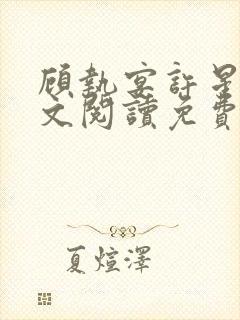 顧執宴許星
文閱讀免費
夏煊澤